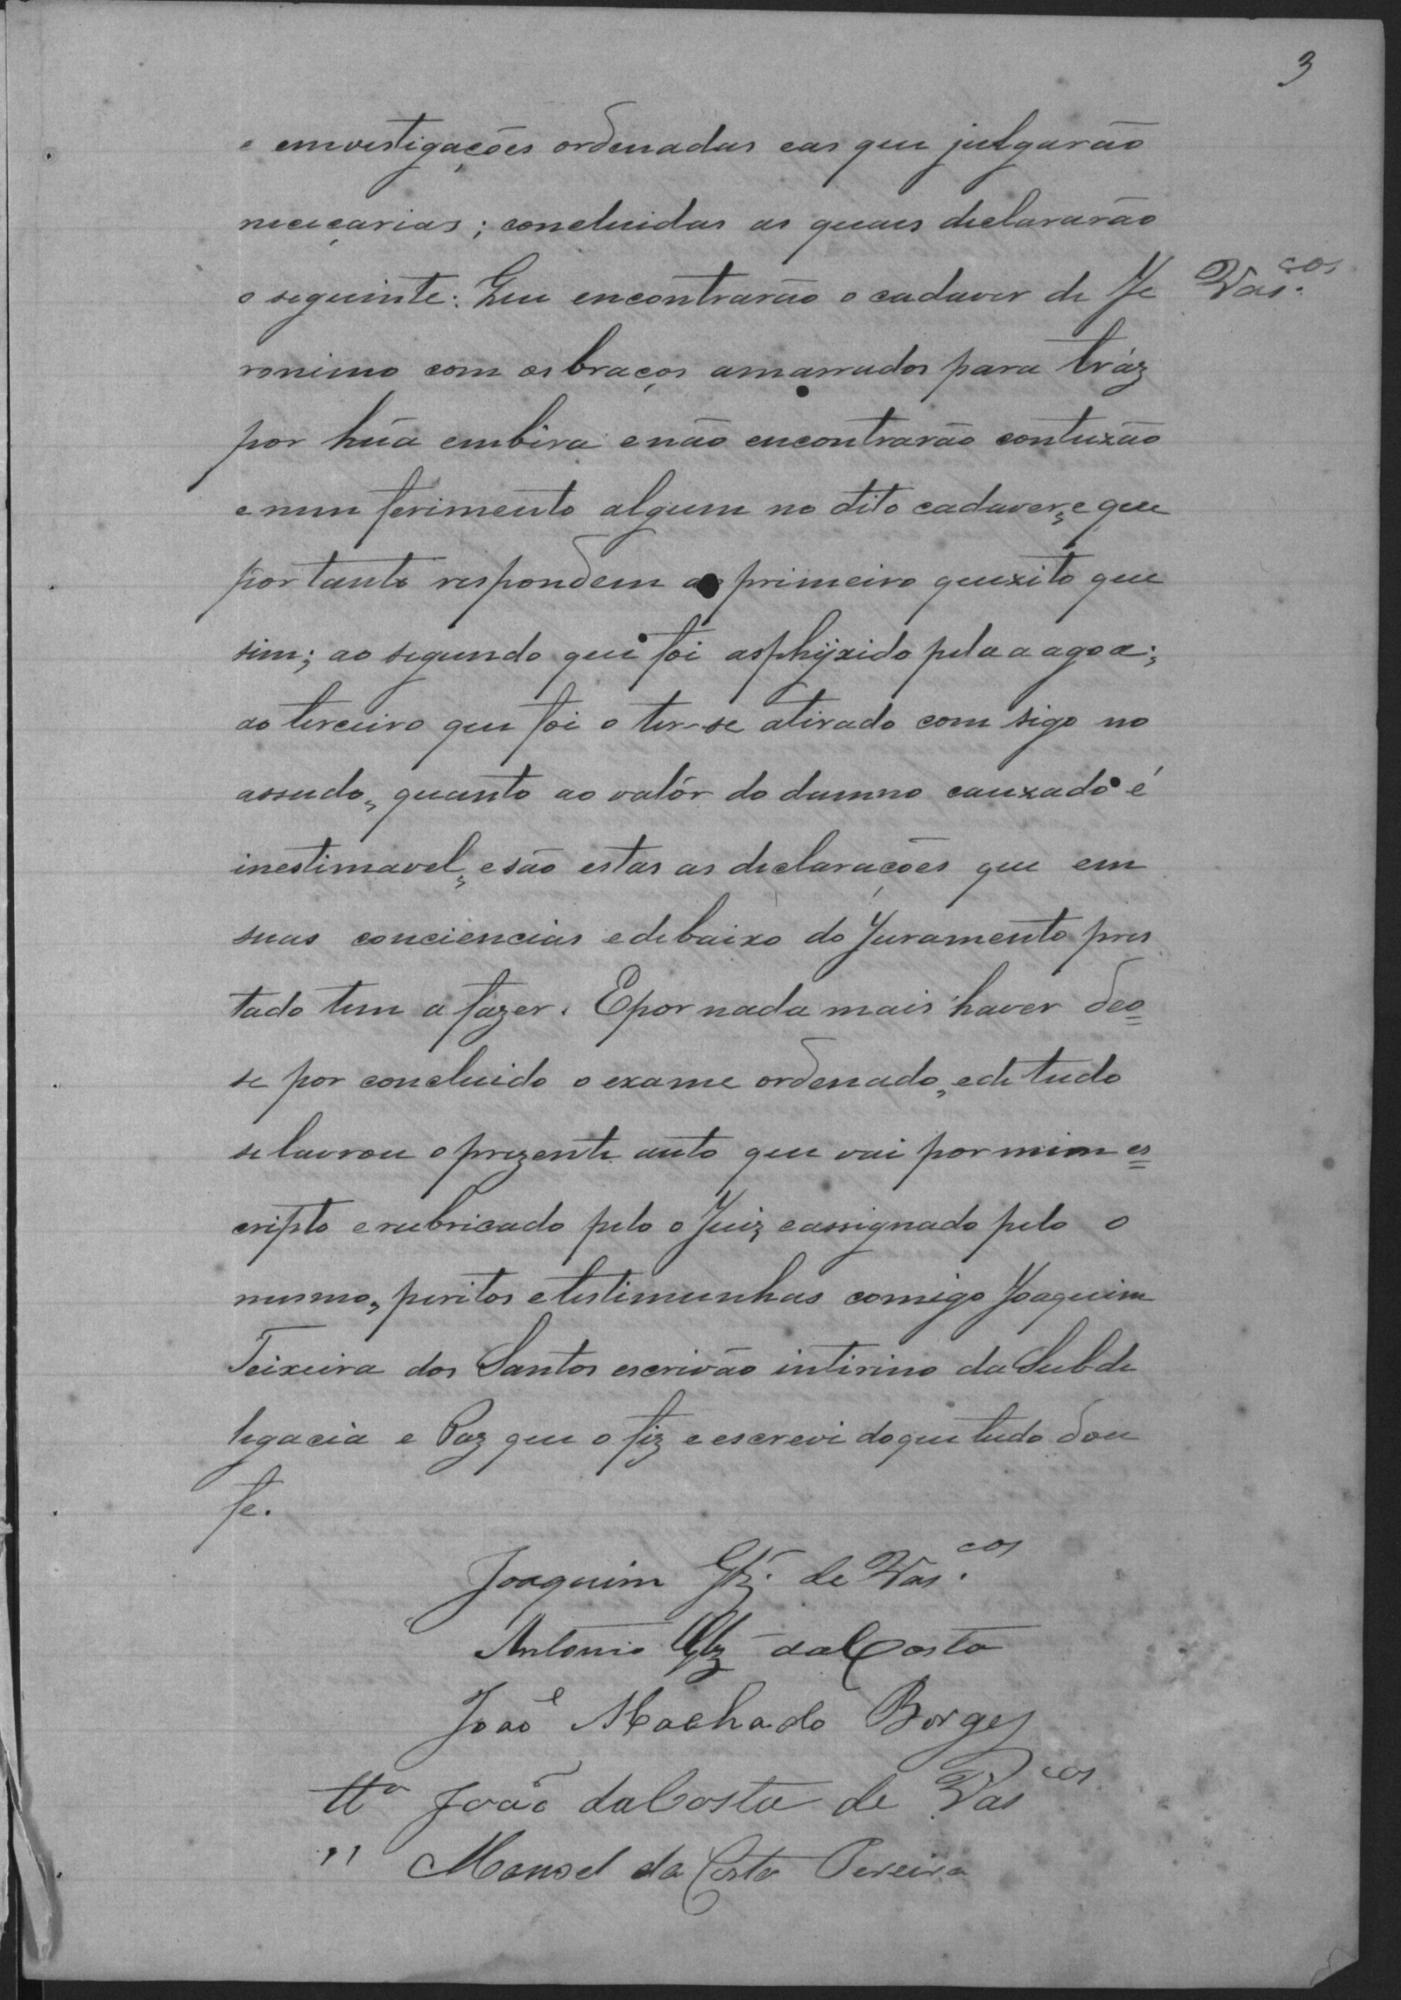 3
e emvestigações ordenadas eas que julgarão
neceçarias; concluidas as quaes declararão
o seguinte: Que encontrarão o cadaver de Je
Vas.cos
ronimo com os braços amarrados para tráz
por hũa embira e não encontrarão contuzão
e nem ferimento algum no dito cadaver, e que
portanto respondem ao primeiro quezito que
sim; ao segundo que foi asphÿxido pela a agoa;
ao terceiro que foi o ter-se atirado com sigo no
assude, quanto ao valôr do damno cauzado é
inestimavel, e são estas as declarações que em
suas conciencias e debaixo do Juramento pres
tado tem a fazer. E por nada mais haver deo=
se por concluido o exame ordenado, e de tudo
se lavrou o prezente auto que vai por mim es=
cripto e rubricado pelo o Juiz e assignado pelo o
mesmo, peritos e testimunhas comigo Joaquim
Teixeira dos Santos escrivão intirino da Subde
legacia e Paz que o fiz e escrevi do que tudo dou
fe.
Joaquim Glz. de Vas.cos
Antonio Glz da Costa
João Machado Borges
tta João da Costa de Vascos
" Manoel da Costa Pereira